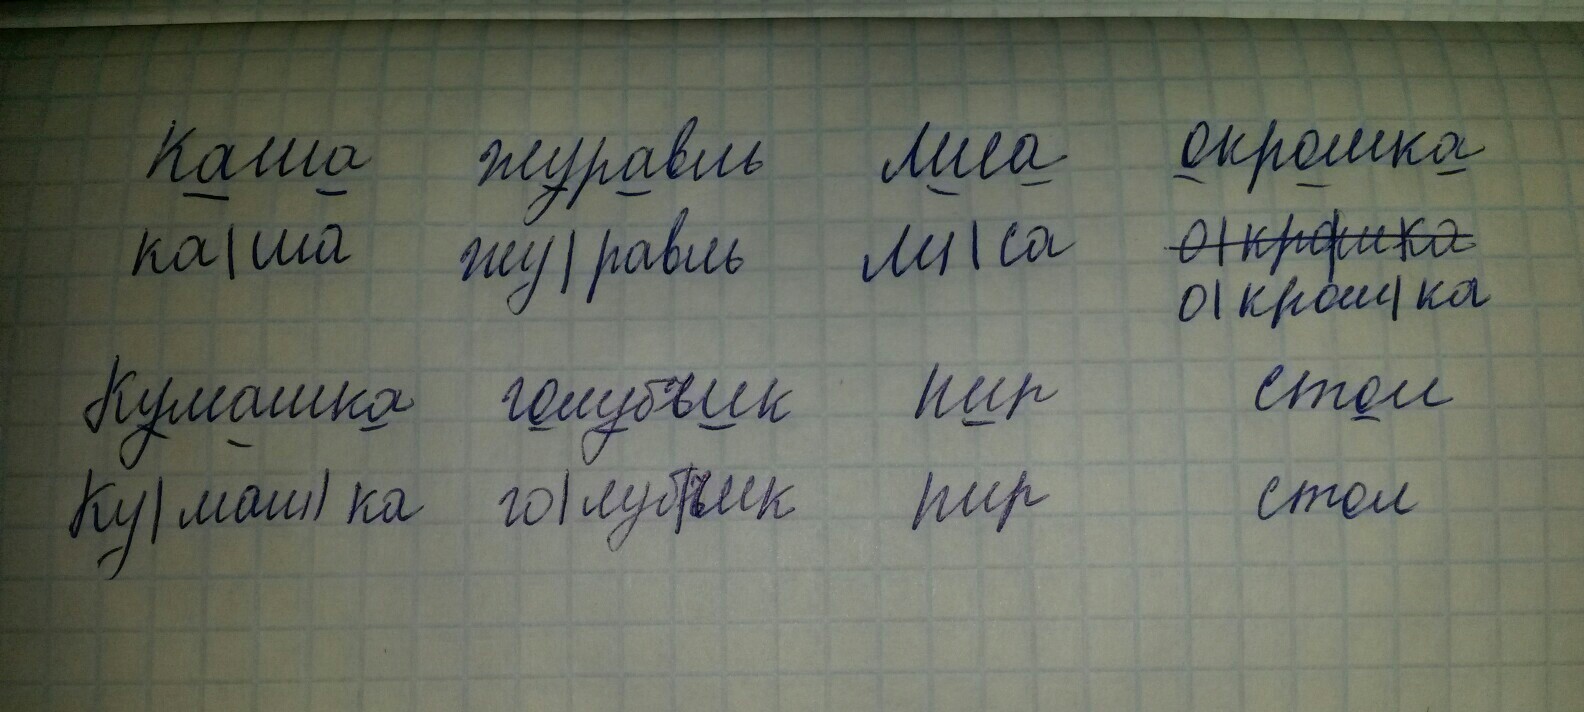 Каша журавль лиса окрошка
ка|ша жу|равль ли|са о|крош|ка
о|крош|ка
Кумашка голубчик пир стол
Ку|маш|ка го|луб|чик пир стол